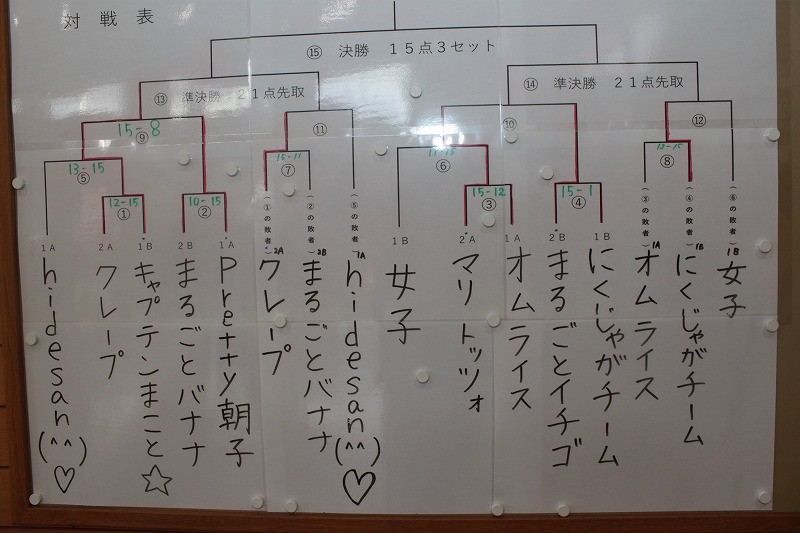 対戦表
⑮ 決勝 １５点３セット
⑬ 準決勝 ２１点先取
⑭ 準決勝 ２１点先取
15-8
⑨
⑪
⑩
⑫
13-15
⑤
15-11
⑦
⑥
13-15
⑧
12-15
①
10-15
②
15-12
③
15-1
④
1A
2A
1B
2B
1A
(①の敗者)2A
(②の敗者)2B
(⑤の敗者)1A
1B
2A
1A
2B
1B
(③の敗者)1A
(④の敗者)1B
(⑥の敗者)1B
hidesan(^^)♡
クレープ
キャプテンまこと☆
まるごとバナナ
Pretty朝子
クレープ
まるごとバナナ
hidesan(^^)♡
女子
マリトッツォ
オムライス
まるごとイチゴ
にくじゃがチーム
オムライス
にくじゃがチーム
女子